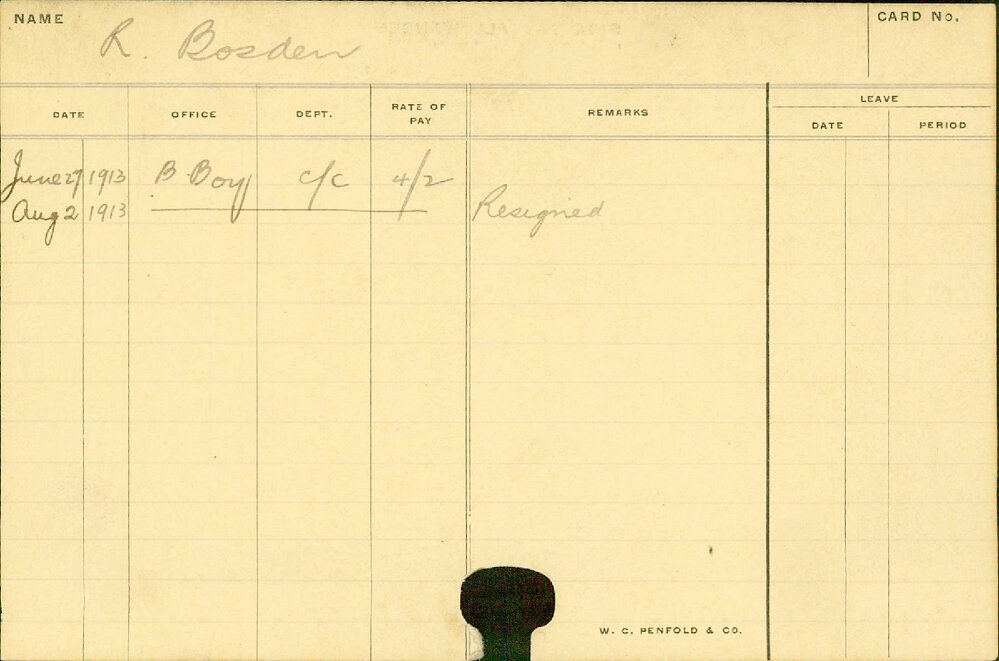 NAME R. Bosden CARD No.
DATE OFFICE DEPT. RATE OF PAY REMARKS LEAVE
DATE PERIOD
June 27 1913 B. Boy c/c 4/2
Aug 2 1913 Resigned
W. C. PENFOLD & CO.